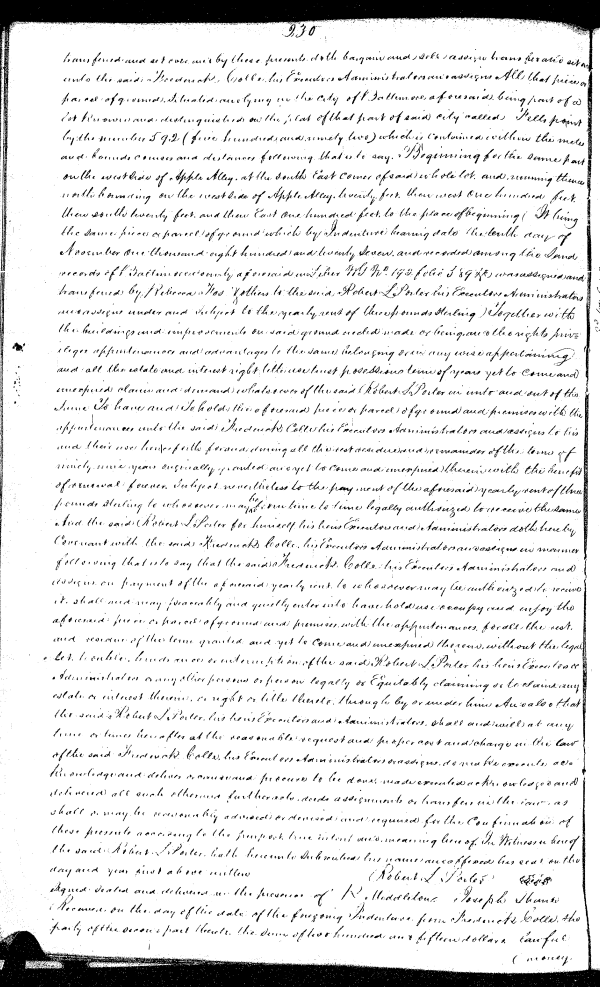 230
transferred and set over and by these presents doth bargain and sell assign transfer and set over
unto the said Frederick Colle, his Executors Administrators and assigns All that piece or
parcel of ground, Situated and lying in the city of Baltimore aforesaid, being part of a
lot known and distinguished on the plat of that part of said city called Fells point
by the number 592 (five hundred and ninety two) which is contained within the metes
and bounds courses and distances following, that is to say, Beginning for the same part
on the west side of Apple Alley, at the South East corner of said whole lot, and running thence
north bounding on the west side of Apple Alley, twenty feet, then west One hundred feet
then south twenty feet, and then East one hundred feet to the place of beginning (It being
the same piece or parcel of ground which by Indenture bearing date the tenth day of
November one thousand eight hundred and twenty Seven, and recorded among the Land
records of Baltimore county aforesaid in Liber W G No. 192 folio 589 &c was assigned and
transferred by, Rebecca & others to the said Robert L. Porter, his Executors Administrators
and assigns under and Subject to the yearly rent of three pounds Sterling) Together with
the buildings and improvements on said ground erected made or being, and the rights priv
ileges appurtenances and advantages to the same belonging or in any wise appertaining
and all the estate and interest right title use trust possessions term of years yet to come and
unexpired claim and demand whatsoever of the said Robert L. Porter in unto and out of the
Same To have and To hold the aforesaid piece or parcel of ground and premises with the
appurtenances unto the said Frederick Colle his Executors Administrators and assigns to his
and their use henceforth forever, during all the rest residue and remainder of the term of
ninety nine years originally granted and yet to come and unexpired therein, with the benefit
of renewal forever. Subject nevertheless to the payment of the aforesaid yearly rent of three
pounds sterling to whosoever may be from time to time legally authorized to receive the same
And the said Robert L. Porter for himself his heirs Executors and Administrators doth hereby
Covenant with the said Frederick Colle, his Executors Administrators and assigns in manner
following that is to say that the said Frederick Colle his Executors Administrators and
assigns, on payment of the aforesaid yearly rent to whosoever may be authorized to receive
it, shall and may peaceably and quietly enter into have hold use occupy and enjoy the
aforesaid piece or parcel of ground and premises, with the appurtenances, for all the rest
and residue of the term granted and yet to come and unexpired therein, without the legal
let, trouble, hindrance or interruption of the said Robert L. Porter his heirs Executors or
Administrators or any other persons or person legally or Equitably claiming or to claim any
estate or interest therein, or right or title thereto, through by or under him And also that
the said Robert L. Porter, his heirs Executors and Administrators, shall and will at any
time or times hereafter at the reasonable request and proper cost and charge in the law
of the said Frederick Colle, his Executors Administrators or assigns, do make execute ac
knowledge and deliver or cause and procure to be done, made executed acknowledged and
delivered all such other and further acts deeds assignments or transfers in the law, as
shall or may be reasonably advised or devised and required for the Confirmation of
these presents according to the purport true intent and meaning hereof In Witness whereof
the said Robert L. Porter hath hereunto Subscribed his name and affixed his seal on the
day and year first above written Robert L. Porter
Signed Sealed and delivered in the presence of R. Middleton Joseph
Received on the day of the date of the foregoing Indenture from Frederick Colle, the
party of the second part thereto the sum of two hundred and fifteen dollars Lawful
money